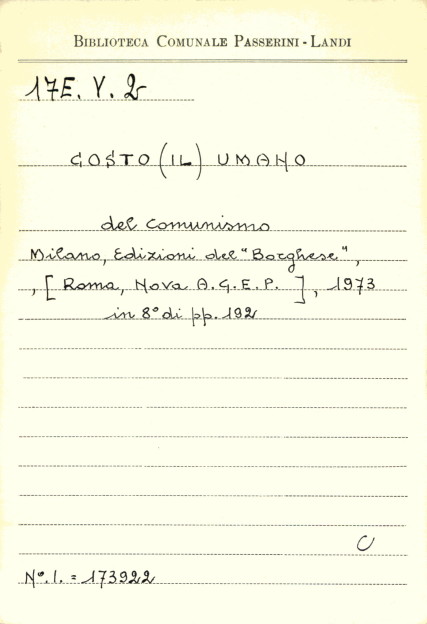 BIBLIOTECA COMUNALE PASSERINI - LANDI
17E. V. 2
COSTO (IL) UMANO
del comunismo
Milano, Edizioni del "Borghese",
, [Roma, Nova A.G.E.P. ], 1973
in 8° di pp. 192
C
N°. I. = 173922